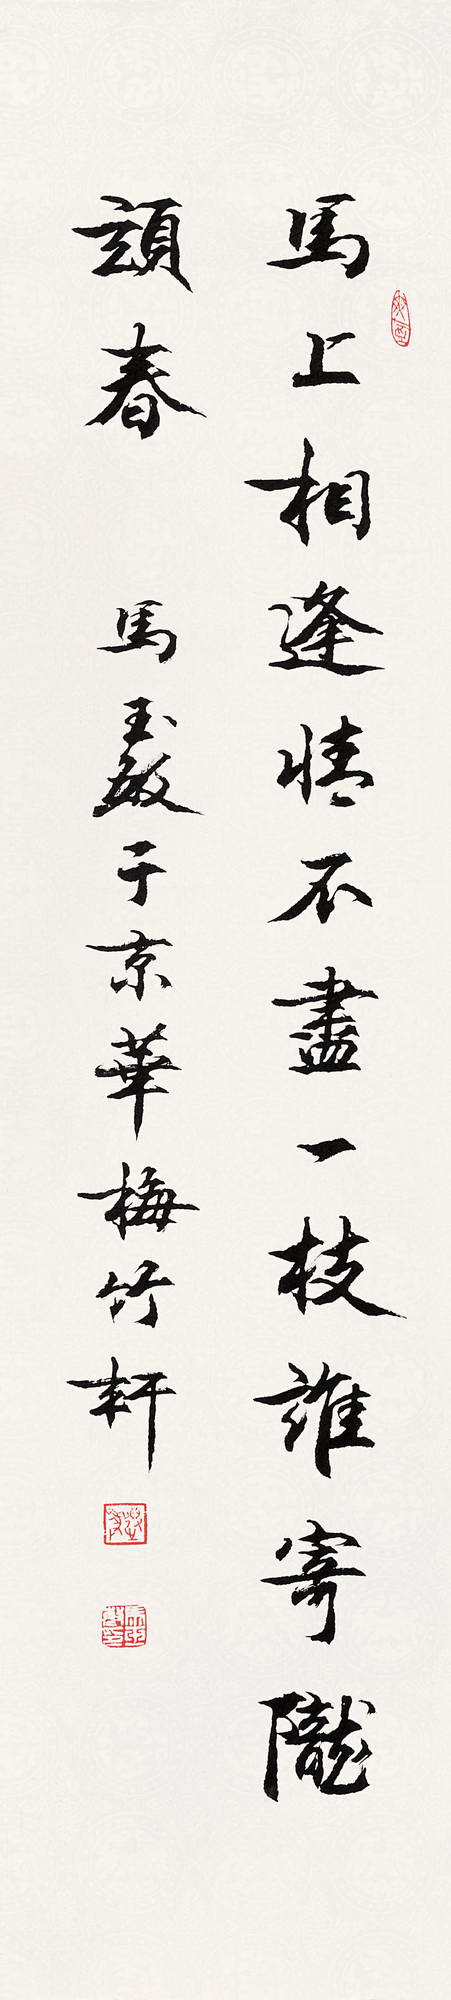 馬上相逢情不盡一枝誰寄隴
頭春
馬玉敏于京華梅竹軒